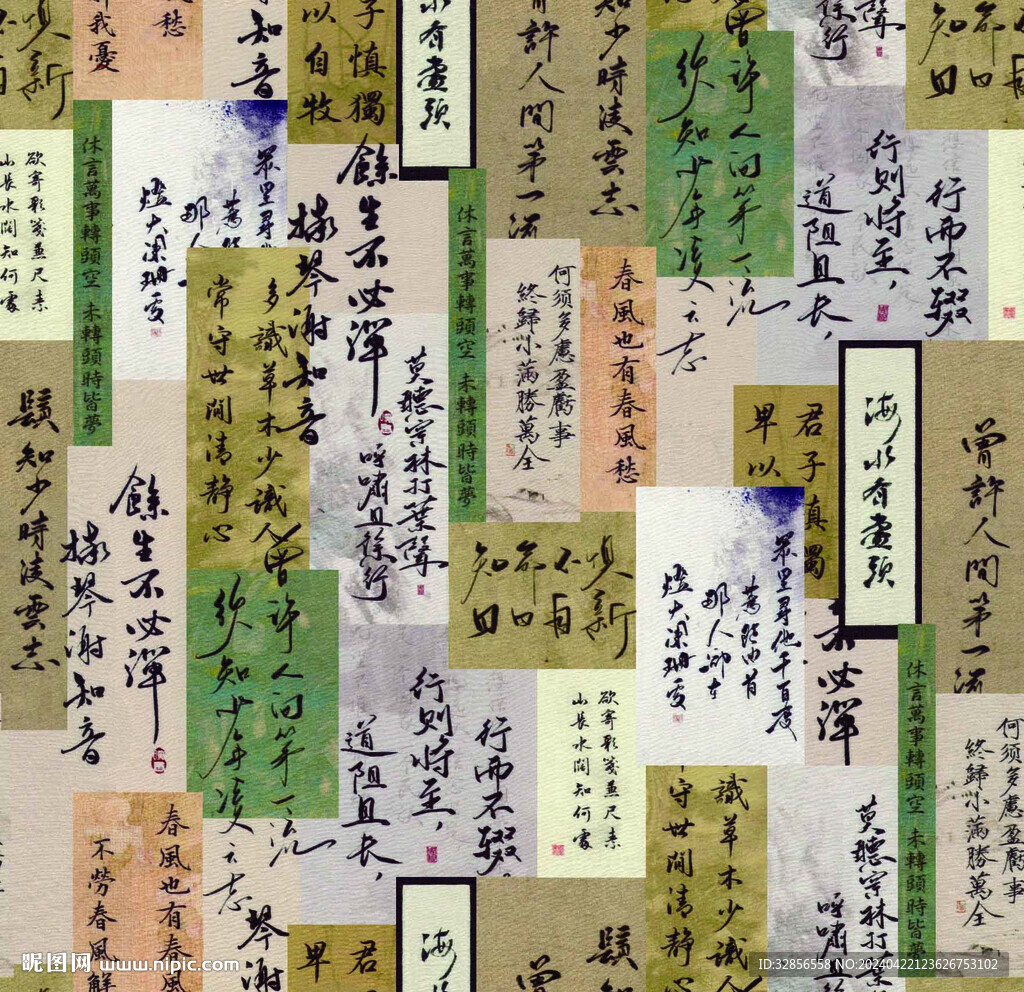 惧新
自
我憂
愁
知音
子慎獨
以自牧
水有盡頭
許人間第一流
知少時凌雲志
曾许人间第一流
须知少年凌云志
徐行
知命
日日自
欲寄彩箋兼尺素
山長水闊知何處
休言萬事轉頭空 未轉頭時皆夢
眾里尋
驀
那人
燈火闌珊處
餘生不必彈
撫琴謝知音
多識草木少識人
常守世間清静心
休言萬事轉頭空 未轉頭時皆夢
何须多慮盈虧事
終歸小滿勝萬全
春風也有春風愁
行而不辍
行则将至，
道阻且长，
莫聽穿林打葉聲
呼嘯且徐行
鬚知少時凌雲志
餘生不必彈
撫琴謝知音
君子真獨
卑以
海水有盡頭
曾許人間第一流
惧新
不自
命日
知日
眾里尋他千百度
驀然回首
那人卻在
燈火闌珊處
不必彈
曾许人间第一流
须知少年凌云志
行而不辍。
行则将至，
道阻且长，
欲寄彩箋兼尺素
山長水闊知何處
休言萬事轉頭空 未轉頭時皆夢
何须多慮盈虧事
終歸小滿勝萬全
識草木少識人
守世間清静心
莫聽穿林打葉
呼嘯且
春風也有春風
不勞春風解
琴謝
君
卑
海水
曾
鬚知
昵图网 www.nipic.com
ID:32856558 NO:20240422123626753102